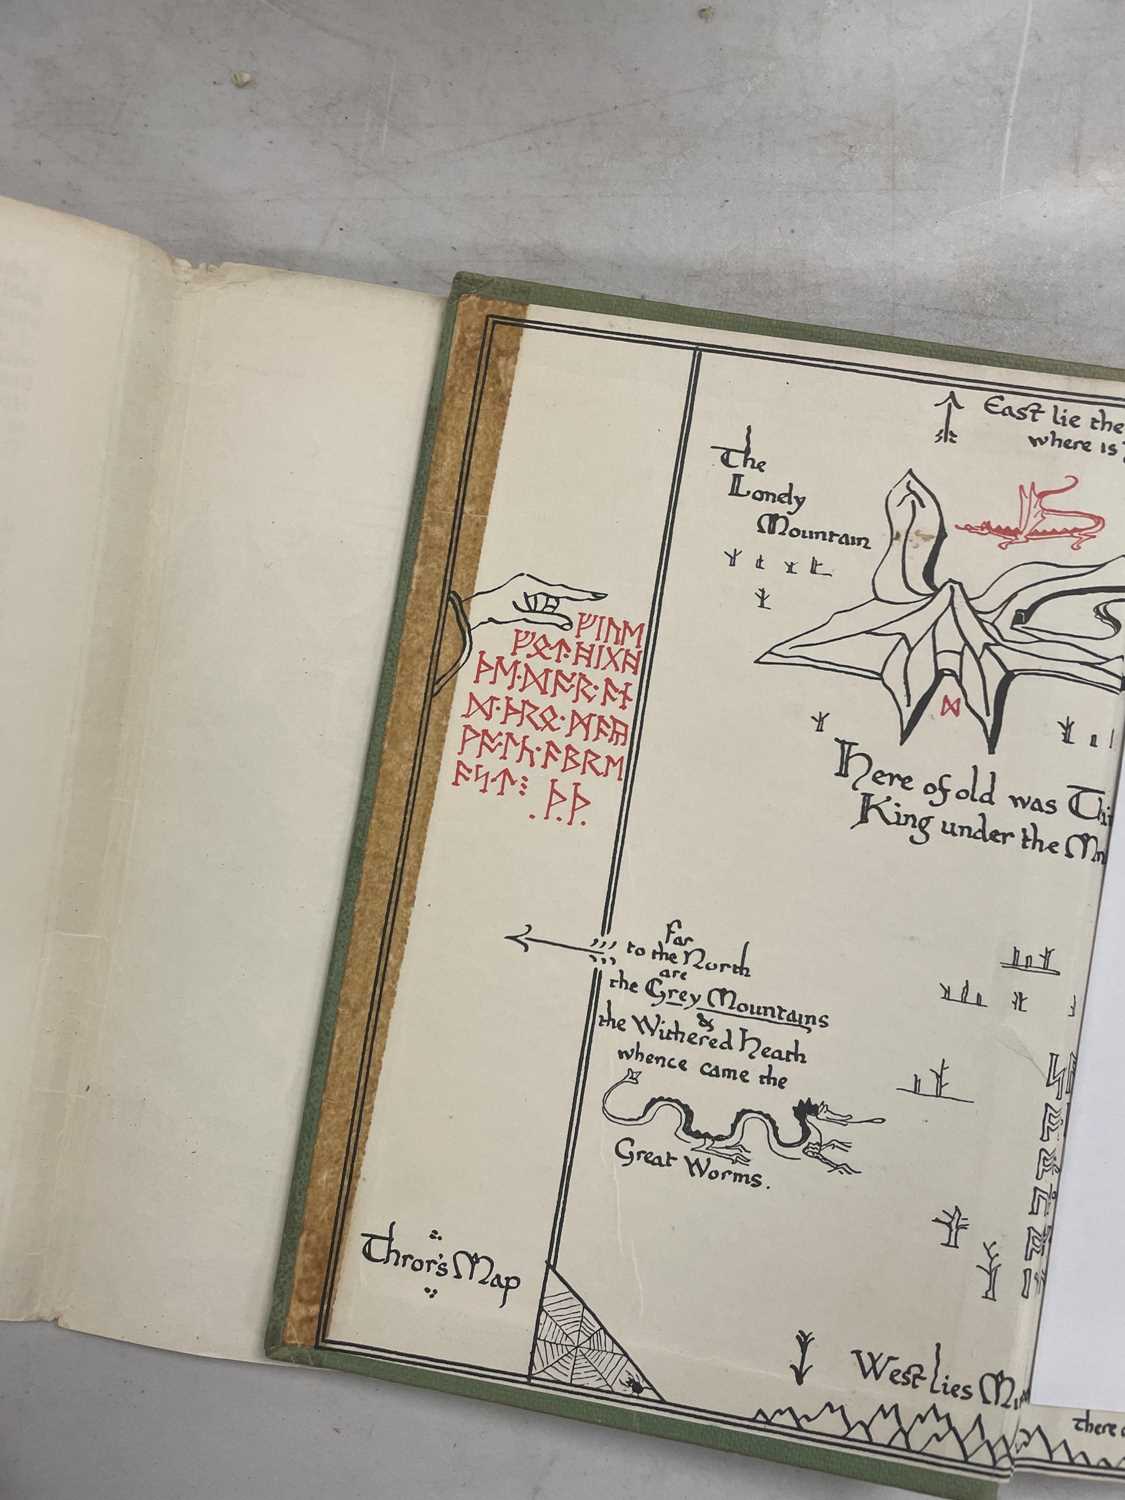 East lie the
where is
The
Lonely
Mountain
ᚠᛁᚢᛖ
ᚠᛟᛏ᛫ᚻᛁᚷᚻ
ᚦᛖ᛫ᛞᚩᚱ᛫ᚪᚾ
ᛞ᛫ᚦᚱᛟ᛫ᛗᚪᚣ
ᚹᚪᛚᚳ᛫ᚪᛒᚱᛖ
ᚪᛋᛏ⁝ ᛫ᚦ᛫ᚦ᛫
ᛞ
Here of old was
King under the
Far
to the North
are
the Grey Mountains
&
the Withered Heath
whence came the
Great Worms.
Thror's Map
West lies
There